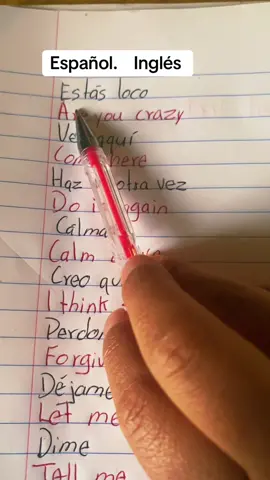 Español. Inglés
Estás loco
you crazy
aquí
here
Haz otra vez
Do again
Calma
Calm
Creo
I think
Déjame
Let me
Dime
Tell me